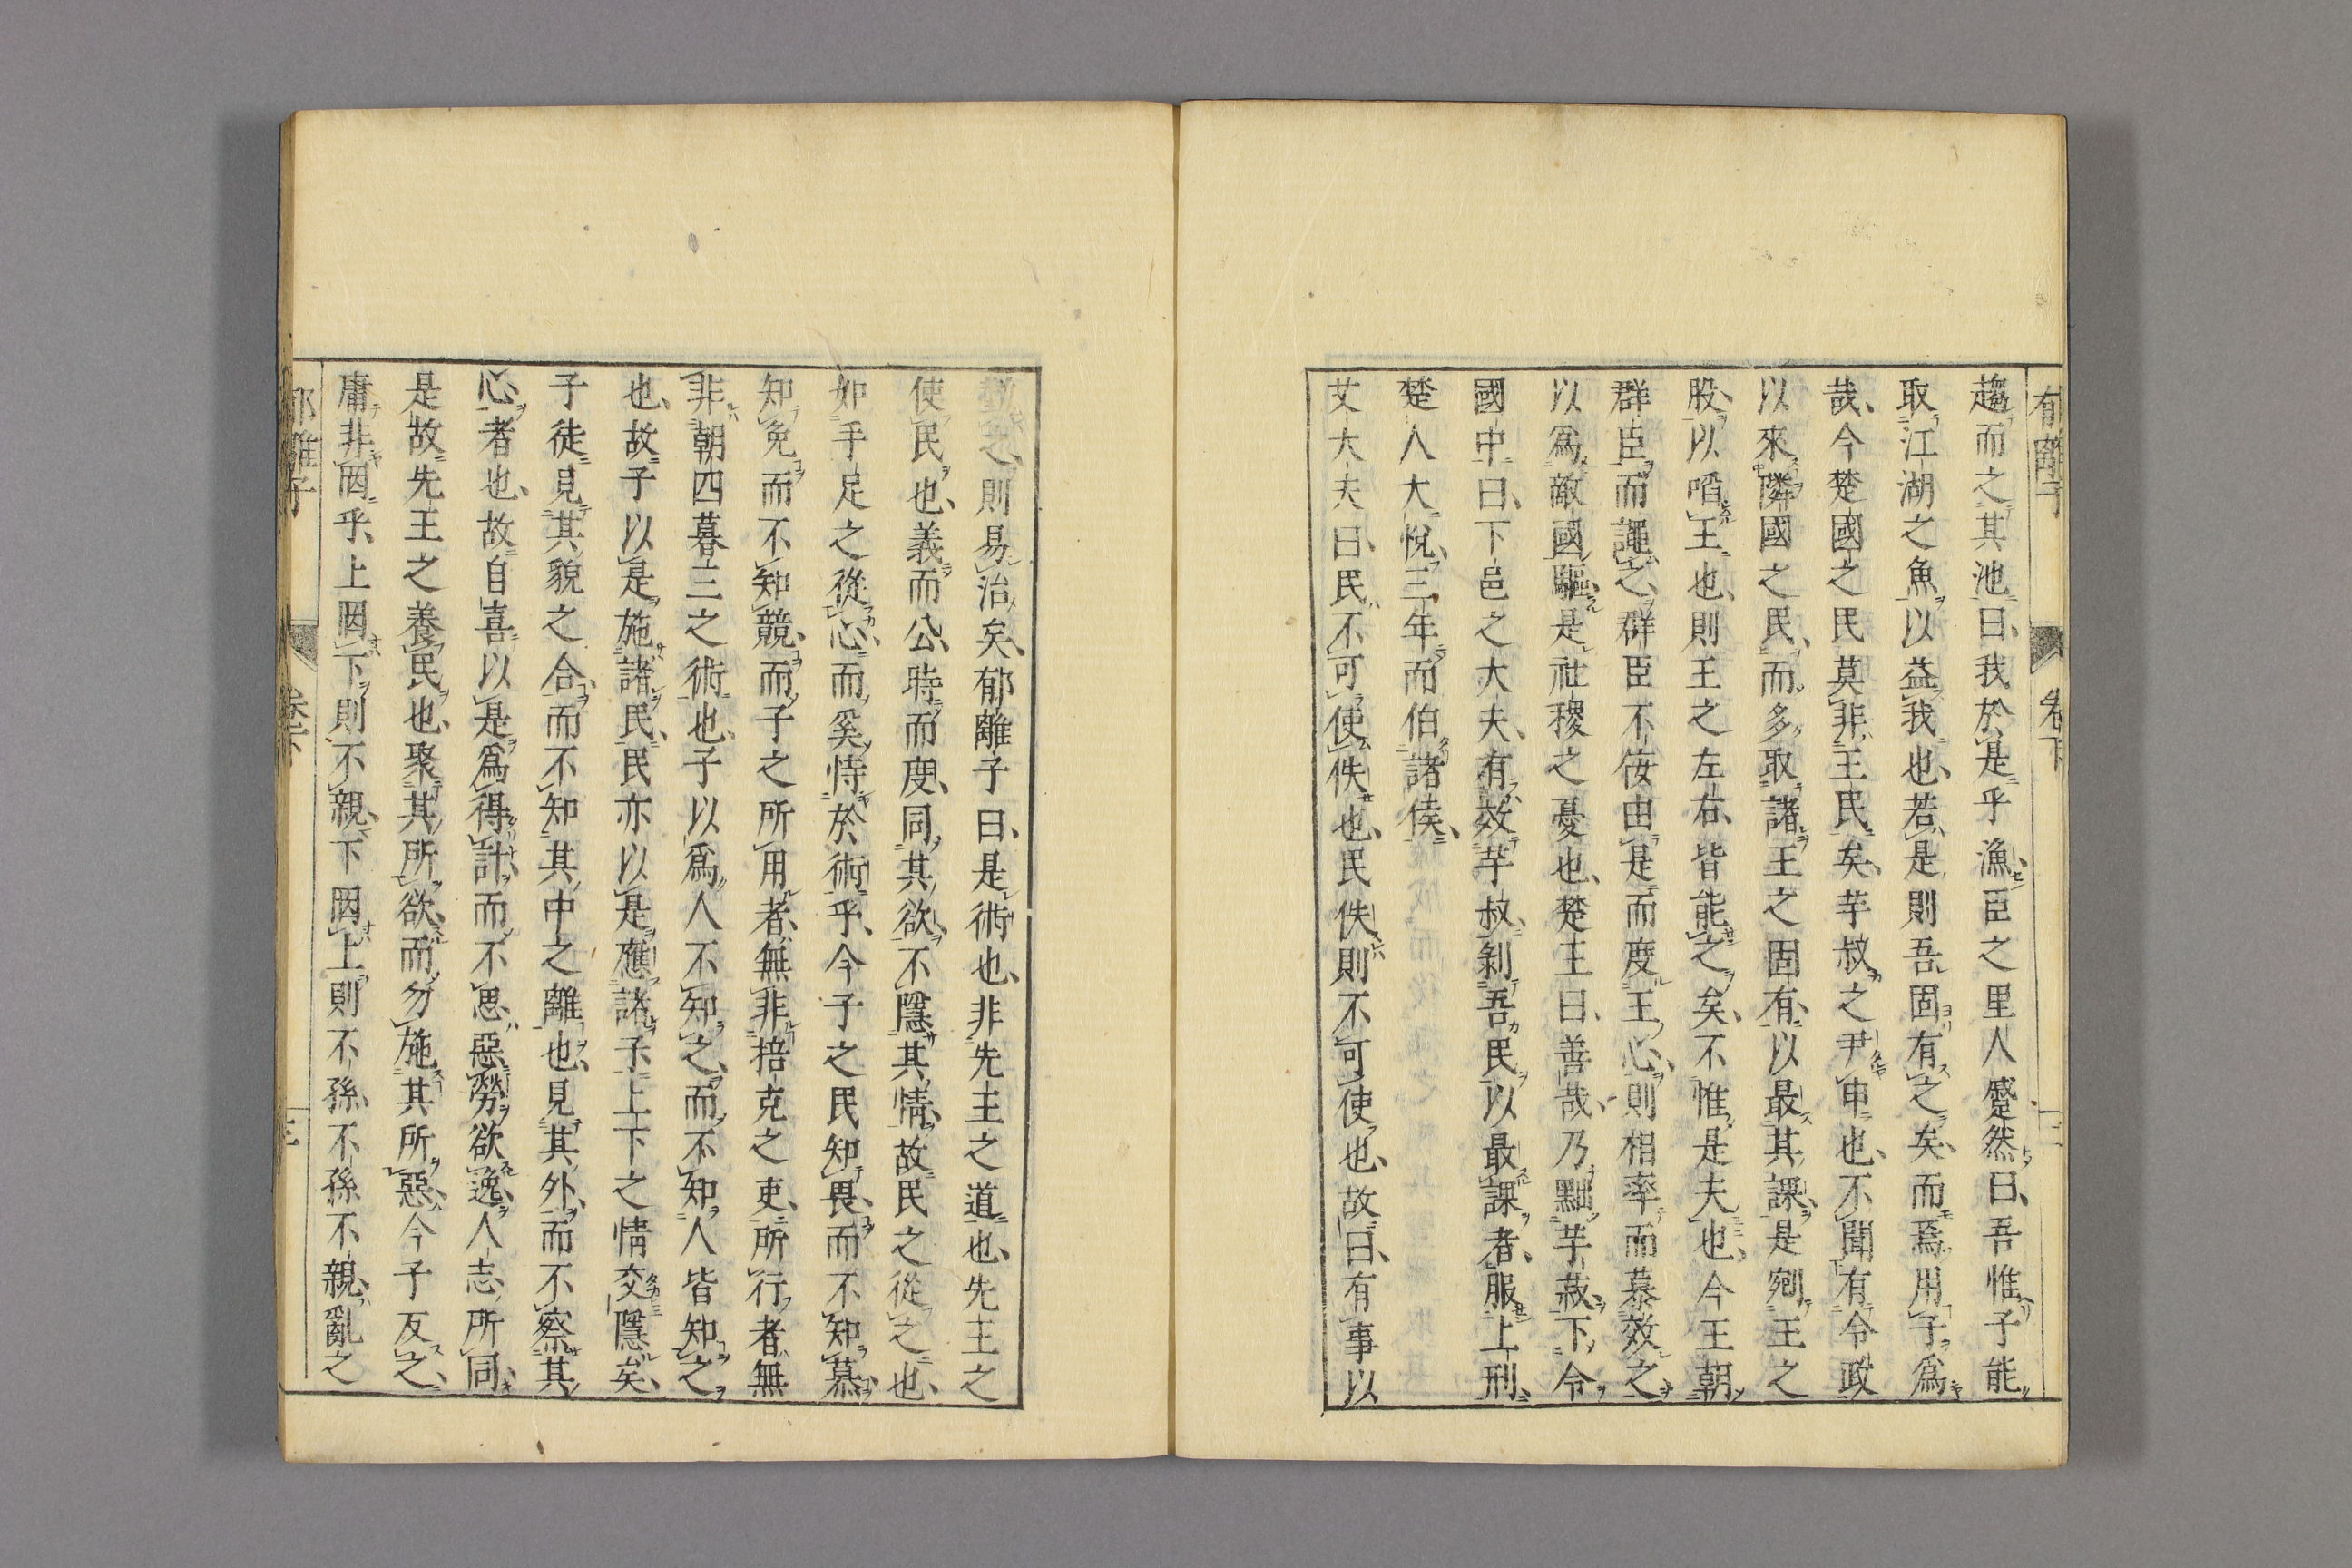 郁離子
卷下
趨而之其池曰、我於是乎漁、臣之里人蹙然曰、吾惟子能
取江湖之魚以益我也、若是則吾固有之矣、而焉用子爲
哉、今楚國之民莫非王民矣、芋叔之尹申也、不聞有令政
以來隣國之民、而多取諸王之固有、以最其課、是剜王之
股、以啗王也、則王之左右皆能之矣、不惟是夫也、今王朝
群臣而譝之、群臣不侫由是而度王心、則相率而慕效之、
以爲敵國驅、是社稷之憂也、楚王曰、善哉、乃黜芋叔、下令
國中曰、下邑之大夫、有效芋叔、剝吾民以最課者、服上刑、
楚人大悅、三年而伯諸侯、
艾大夫曰、民不可使佚也、民佚則不可使也、故曰、有事以
之、則易治矣、郁離子曰、是術也、非先王之道也、先王之
使民也、義而公、時而度、同其欲、不隱其情、故民之從之也、
如手足之從心、而奚恃於術乎、今子之民知畏、而不知慕、
知免而不知競、而子之所用者、無非掊克之吏、所行者、無
非朝四暮三之術也、子以爲人不知之、而不知人皆知之
也、故子以是施諸民、民亦以是應諸子、上下之情交隱矣、
子徒見其貌之合、而不知其中之離也、見其外、而不察其
心者也、故自喜以是爲得計、而不思惡勞欲逸、人志所同、
是故先王之養民也、聚其所欲、而勿施其所惡、今子反之、
庸非罔乎、上罔下、則不親、下罔上、則不孫、不孫不親、亂之
郁離子
卷下
三